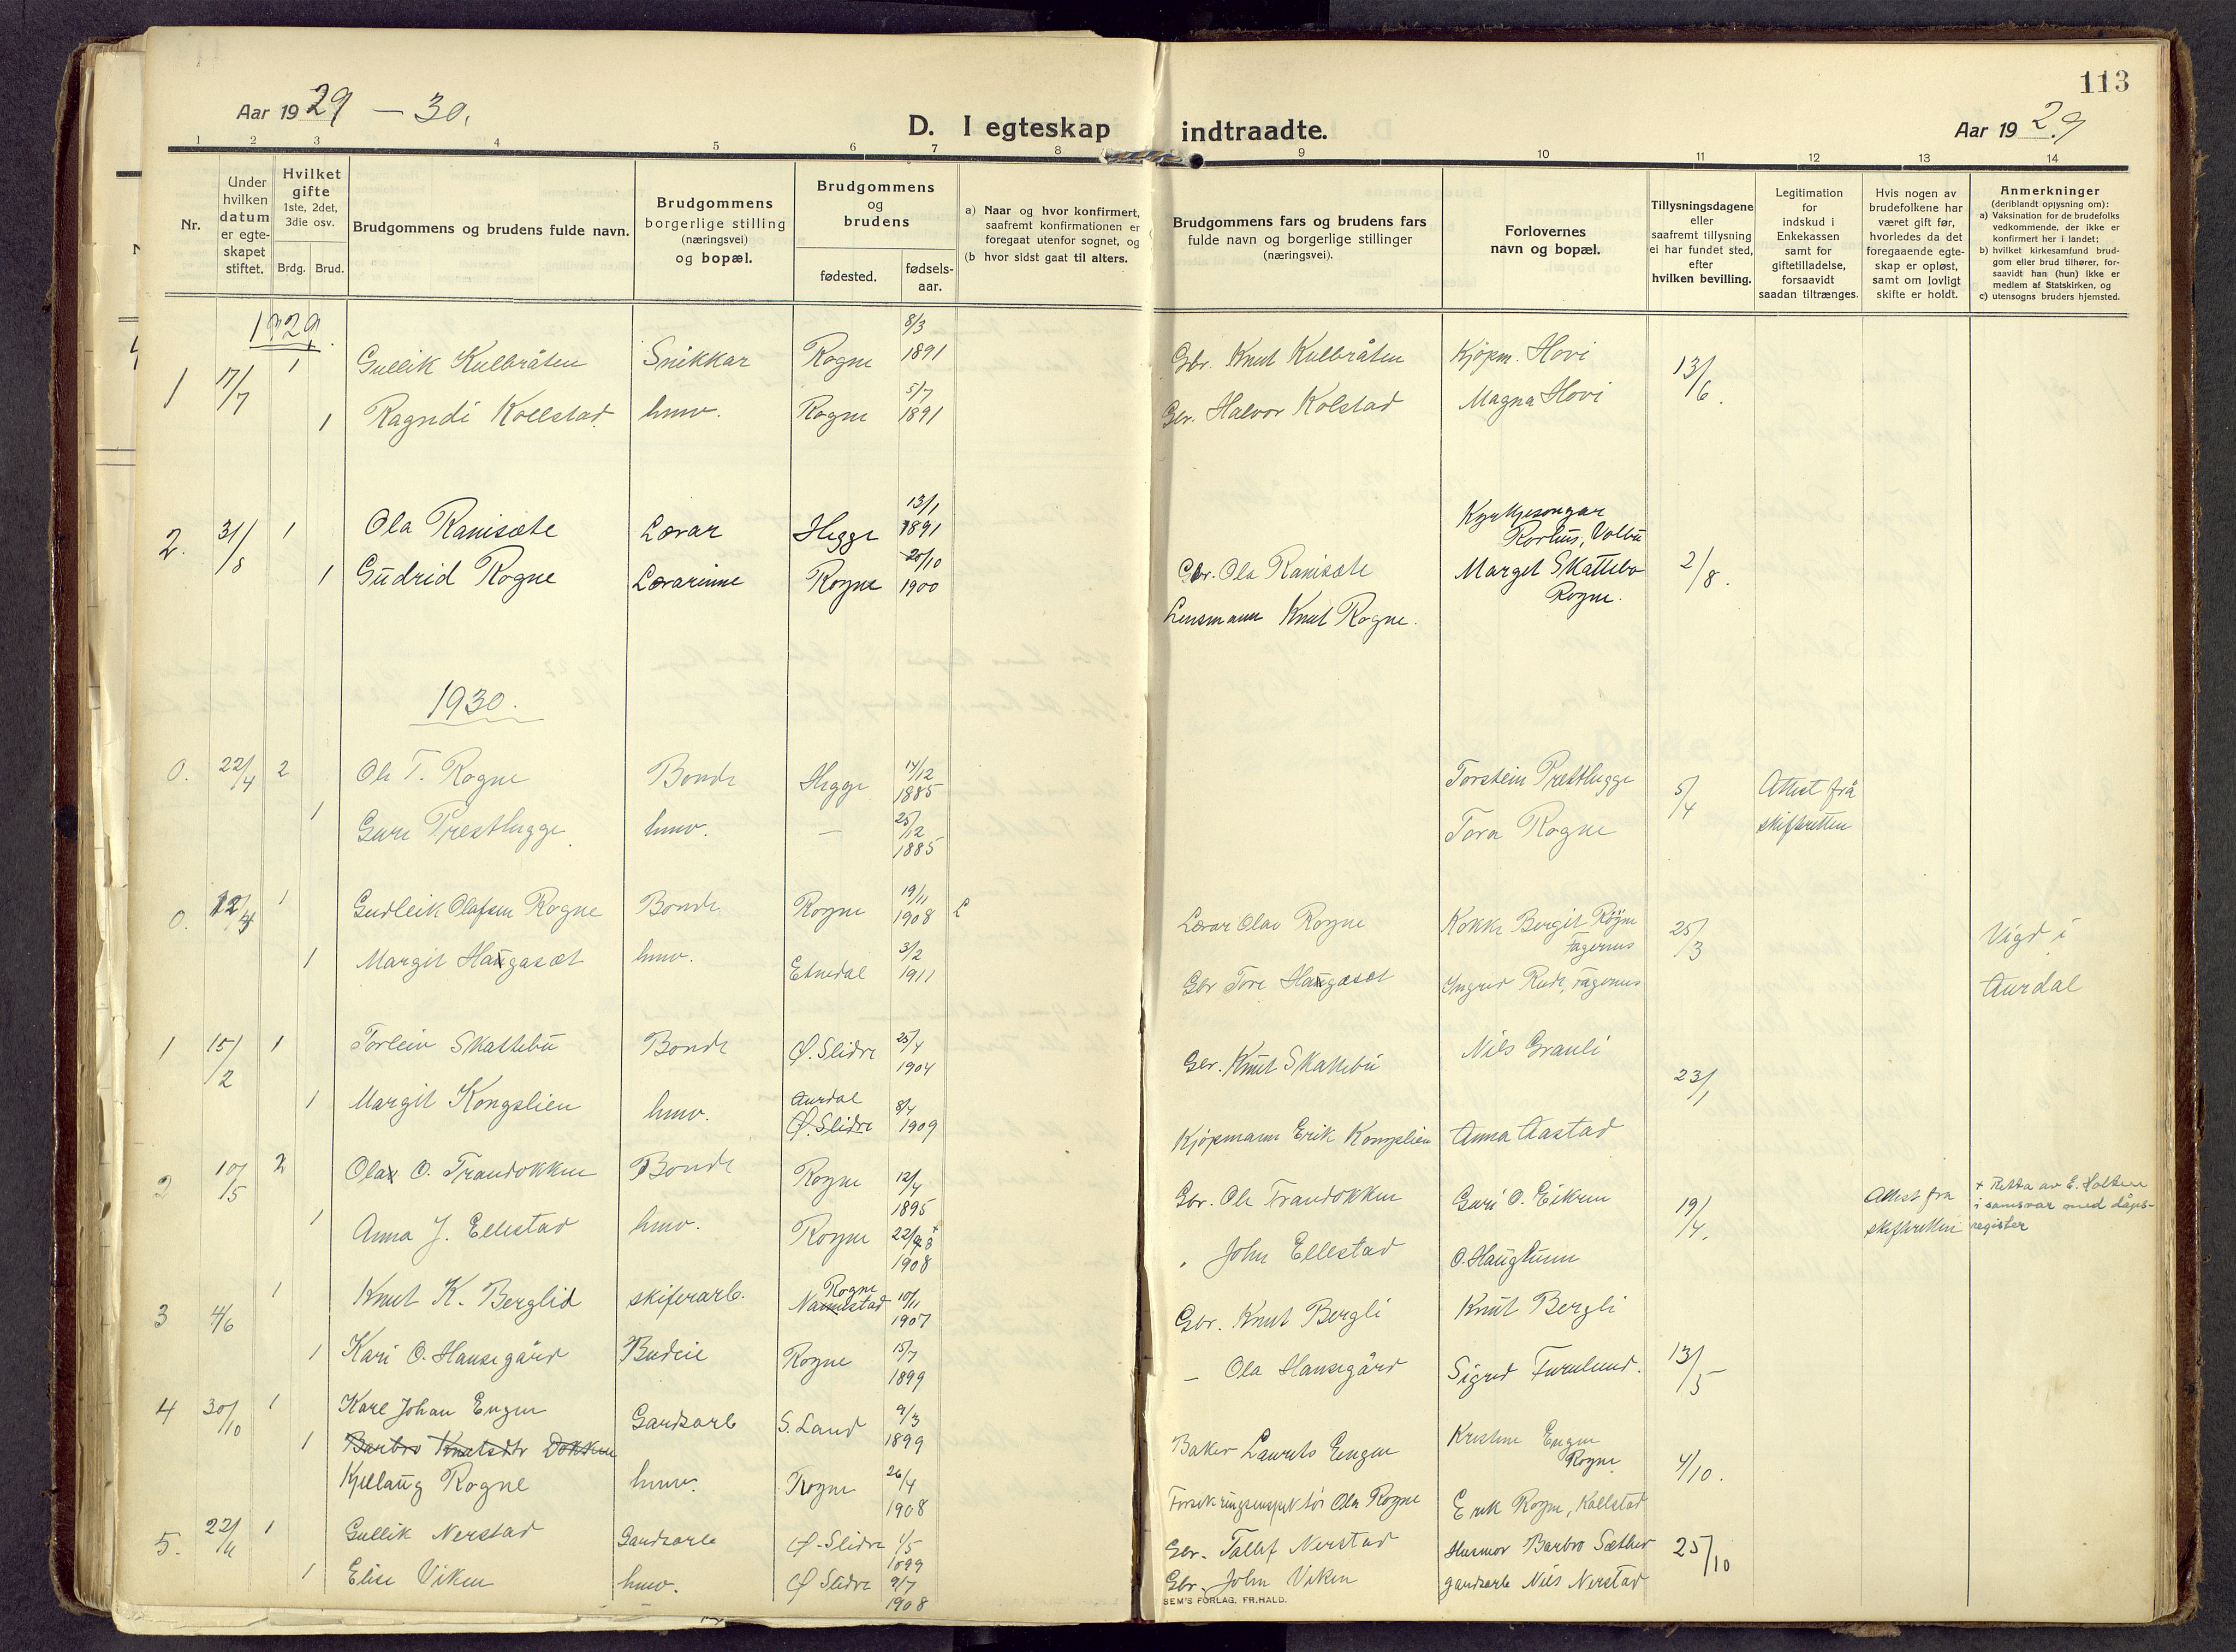 113
Aar 1929 — 30.
D. I egteskap indtraadte.
Aar 1929
1 2 3 4 5 6 7 8 9 10 11 12 13 14
Nr.
Under hvilken datum er egteskapet stiftet.
Hvilket gifte 1ste, 2det, 3die osv.
Brdg. Brud.
Brudgommens og brudens fulde navn.
Brudgommens borgerlige stilling (næringsvei) og bopæl.
Brudgommens og brudens
fødested.
fødsels-aar.
a) Naar og hvor konfirmert, saafremt konfirmationen er foregaat utenfor sognet, og
(b hvor sidst gaat til alters.
Brudgommens fars og brudens fars fulde navn og borgerlige stillinger (næringsvei).
Forlovernes navn og bopæl.
Tillysningsdagene eller saafremt tillysning ei har fundet sted, efter hvilken bevilling.
Legitimation for indskud i Enkekassen samt for giftetilladelse, forsaavidt saadan tiltrænges.
Hvis nogen av brudefolkene har været gift før, hvorledes da det foregaaende egteskap er opløst, samt om lovligt skifte er holdt.
Anmerkninger
(deriblandt opjysning om):
a) Vaksination for de brudefolks vedkommende, der ikke er konfirmert her i landet;
b) hvilket kirkesamfund brudgom eller brud tilhører, forsaavidt han (hun) ikke er medlem af Statskirken, og
c) utensogns bruders hjemsted.
1929.
1 17/7 1 Gullik Kulbråten Snikkar Rogne 8/3 1891 Gbr. Knut Kulbråten Kjøpm. Hovi 13/6.
1 Ragndi Kollstad hmv. Rogne 5/7 1891 Gbr. Halvor Kolstad Magna Hovi
2. 31/8 1 Ola Ranisæte Lærar Hegge 13/1 1891 Gbr. Ola Ranisæte Kyrkjesongar Rorhus, Volbu 2/8.
1 Gudrid Rogne Lærarinne Rogne 20/10 1900 Lensmann Knut Rogne. Margit Skattebo Rogne.
1930.
0. 22/4 2 Ole T. Rogne Bonde Hegge 14/12 1885 Torstein Presthegge 5/4 Attest frå skifteretten
1 Guri Presthegge hmv. — 25/12 1885 Tora Rogne
0. 12/4 1 Gudleik Olafsen Rogne Bonde Rogne 19/11 1908 Lærar Olav Rogne Kokke Bergit Røyne Fagernes 25/3 Vigd i
1 Margit Haugasæt hmv. Etnedal 3/2 1911 Gbr Tore Haugasæt Ingrid Rude, Fagernes Aurdal
1 15/2 1 Torleiv Skattebu Bonde Ø. Slidre 25/4 1904 Gbr. Knut Skattebu Nils Granli 23/1
1 Margit Kongslien hmv. Aurdal Ø. Slidre 8/4 1909 Kjøpmann Erik Kongslien Anna Aastad
2 10/5 2 Ola O. Trandokken Bonde Rogne 12/4 1895 Gbr. Ole Trandokken Guri O. Eikren 19/4. Attest fra skifteretten + Retta av E. Holten i samsvar med dåpsregister
1 Anna J. Ellestad hmv. Rogne 22/8 + 1908 John Ellestad O. Haugtunn
3 4/6 1 Knut K. Berglid skiferarb. Rogne 10/11 1907 Gbr. Knut Bergli Knut Bergli 13/5
1 Kari O. Hansegård Budeie Rogne 15/7 1899 — Ola Hansegård Sigrid Furulund.
4 30/10 1 Karl Johan Engen Gardsarb S. Land 9/3 1899 Baker Laurits Engen Kristine Engen Rogne 4/10.
1 Barbro Knutsdtr Dokken
Kjellaug Rogne hmv. Rogne 26/4 1908 Forsikringsinspektør Ola Rogne Erik Rogne, Kollstad
5. 22/11 1 Gullik Nerstad Gardsarb Ø. Slidre 1/5 1899 Gbr. Tollef Nerstad Husmor Barbro Sæther 25/10
1 Elise Viken hmv. Ø Slidre 9/7 1908 Gbr. John Viken gardsarb Nils Nerstad
SEM'S FORLAG, FR.HALD.